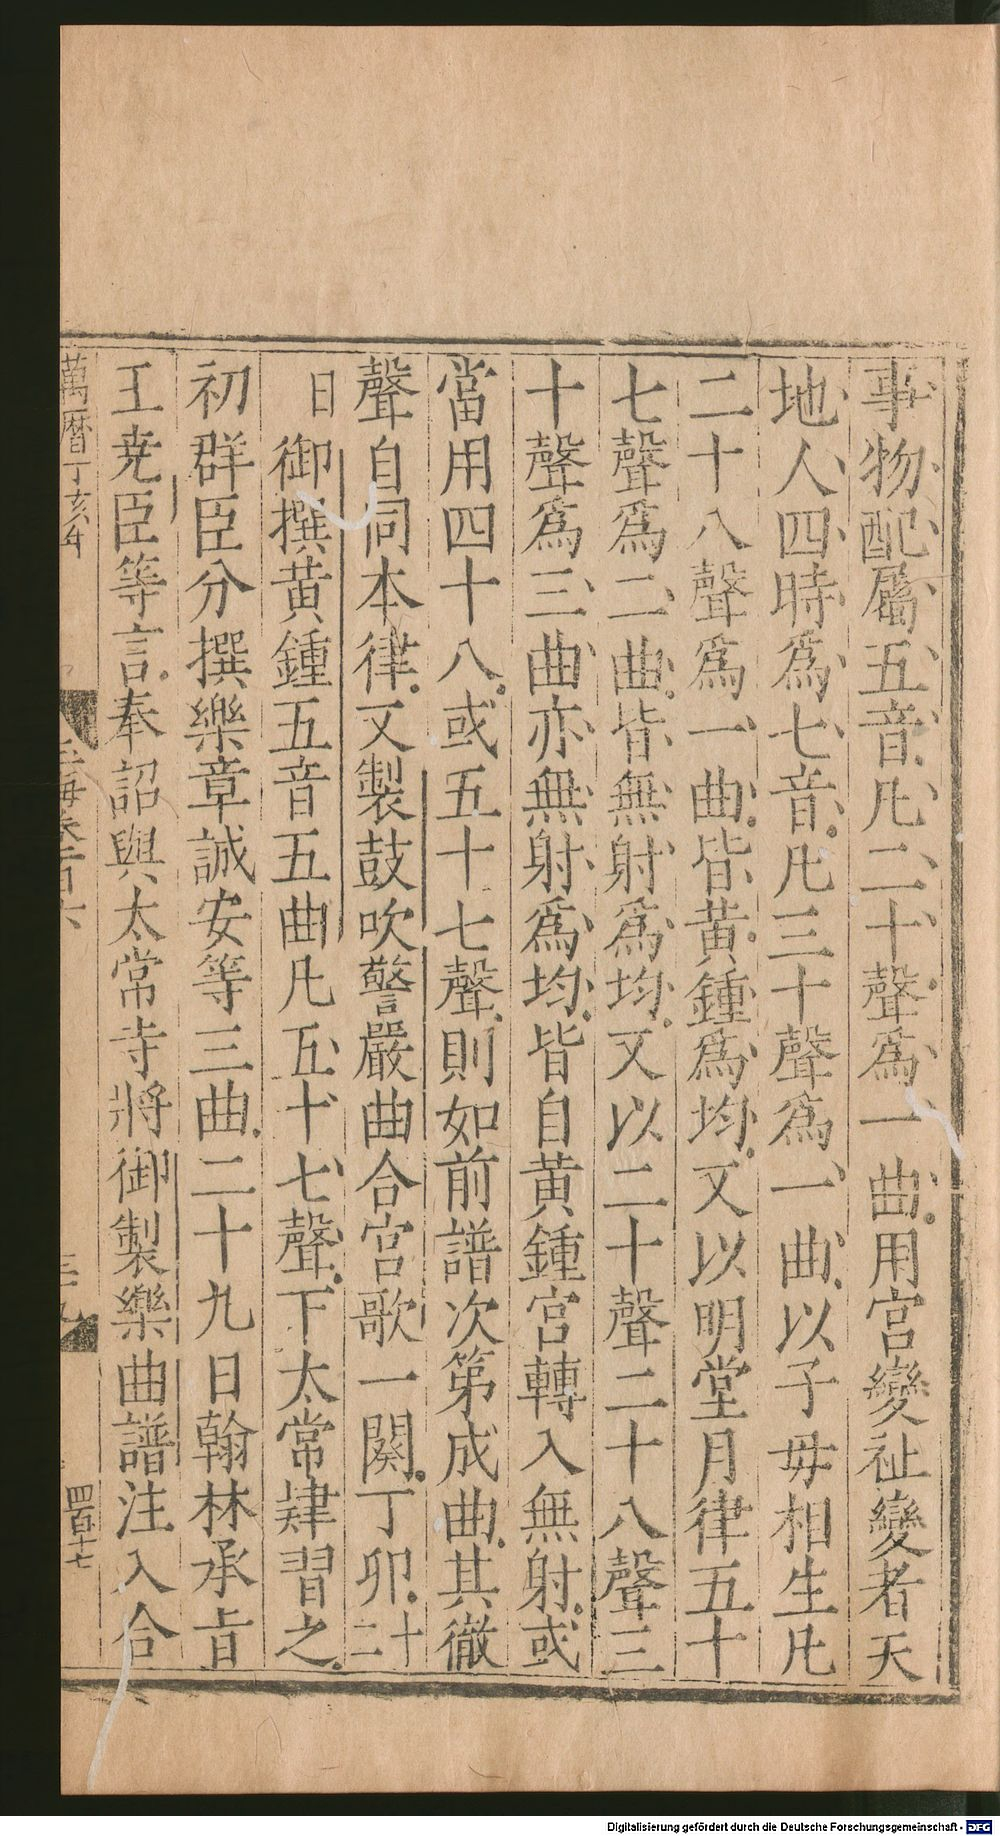 事物配屬五音凡二十聲爲一曲用宮變徵變者天
地人四時爲七音凡三十聲爲一曲以子母相生凡
二十八聲爲一曲皆黃鍾爲均又以明堂月律五十
七聲爲二曲皆無射爲均又以二十聲二十八聲三
十聲爲三曲亦無射爲均皆自黃鍾宮轉入無射或
當用四十八或五十七聲則如前譜次第成曲其徹
聲自同本律又製鼓吹警嚴曲合宮歌一闋丁卯十二
日御撰黃鍾五音五曲凡五十七聲下太常肄習之
初群臣分撰樂章誠安等三曲二十九日翰林承旨
王堯臣等言奉詔與太常寺將御製樂曲譜注入合
萬曆丁亥年
玉海卷一百六
四百十七
Digitalisierung gefördert durch die Deutsche Forschungsgemeinschaft - DFG